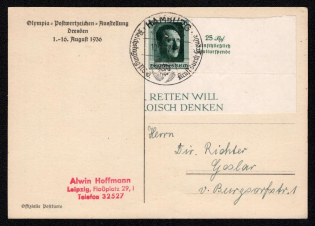 Olympia - Postwertzeichen - Ausstellung
Dresden
1.-16. August 1936
HAMBURG
25 Rpf.
RETTEN WILL
OISCH DENKEN
Herrn
Dir. Richter
Goslar
Alwin Hoffmann
Leipzig, Floßplatz 29, I
Telefon 32527
Offizielle Postkarte